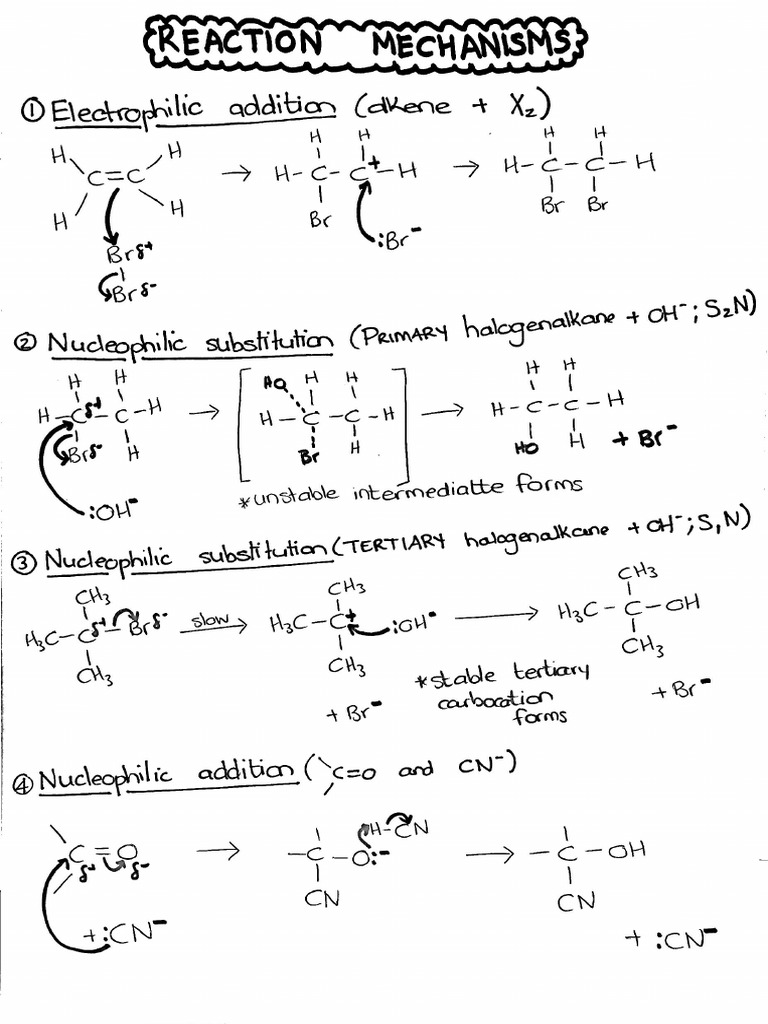 REACTION MECHANISMS
① Electrophilic addition (alkene + X₂)
H H H H H H
C=C → H-C-C⁺-H → H-C-C-H
H H Br :Br⁻ Br Br
Brδ+
Brδ-
② Nucleophilic substitution (PRIMARY halogenalkane + OH⁻; S₂N)
H H HO H H H H
H-Cδ+-C-H → H-C-C-H → H-C-C-H
Brδ- H Br H HO H + Br⁻
:OH⁻ *unstable intermediatte forms
③ Nucleophilic substitution (TERTIARY halogenalkane + OH⁻; S₁N)
CH₃ CH₃ CH₃
H₃C-Cδ+-Brδ- slow → H₃C-C⁺ :OH⁻ → H₃C-C-OH
CH₃ CH₃ CH₃
+ Br⁻ *stable tertiary + Br⁻
carbocation
forms
④ Nucleophilic addition (C=O and CN⁻)
H-CN
C=O → -C-O:⁻ → -C-OH
δ+ δ- CN CN
+:CN⁻ + :CN⁻